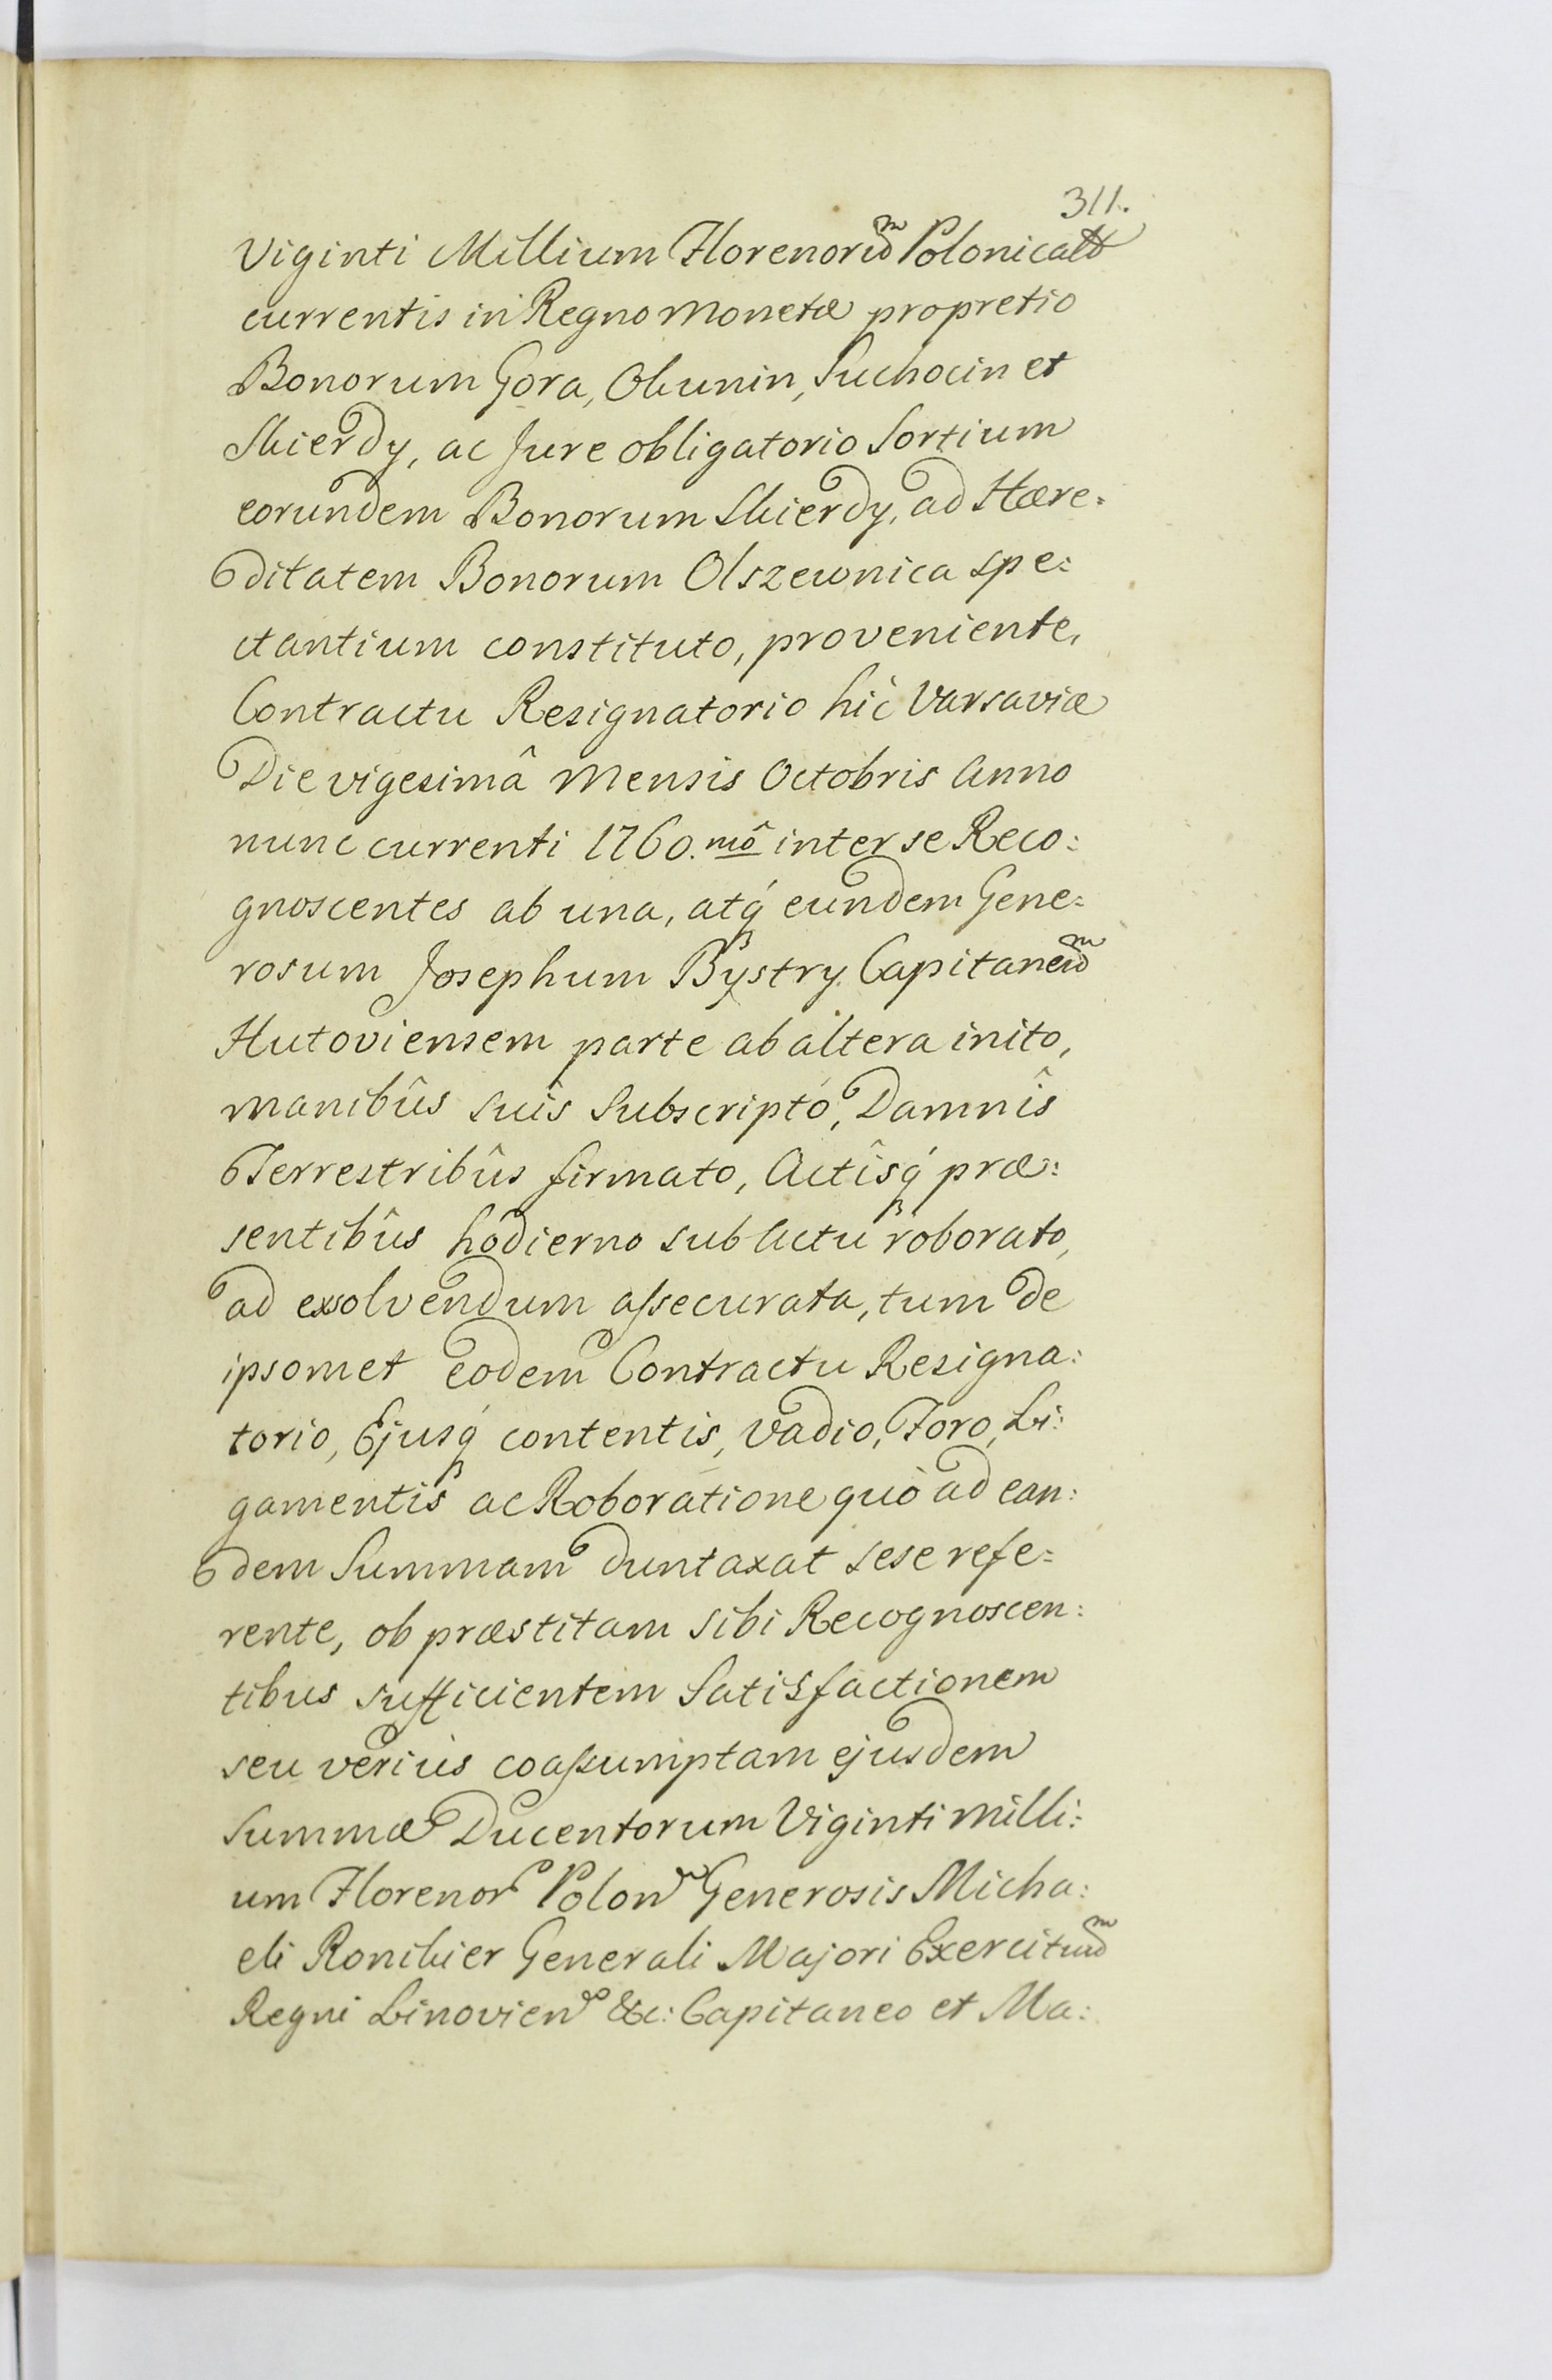 311.
Viginti Millium Florenorum Polonical
currentis in Regno Monetæ pro pretio
Bonorum Gora, Okunin, Suchocin et
Skierdy, ac Jure obligatorio Sortium
eorundem Bonorum Skierdy, ad Hære=
ditatem Bonorum Olszewnica spe:
ctantium constituto, proveniente,
Contractu Resignatorio hic Varsaviæ
Die vigesimâ Mensis Octobris Anno
nunc currenti 1760.mô inter se Reco:
gnoscentes ab una, atq́ eundem Gene=
rosum Josephum Bystry Capitaneum
Hutoviensem parte ab altera inito,
manibûs suis Subscripto, Damnîs
Terrestribûs firmato, Actîsq́ præ:
sentibûs hodierno sub Actu roborato,
ad exolvendum assecurata, tum de
ipsomet eodem Contractu Resigna:
torio, Ejusq́ contentis, Vadio, Foro, Li:
gamentis ac Roboratione quò ad ean:
dem Summam duntaxat sese refe=
rente, ob præstitam Sibi Recognoscen:
tibus sufficientem Satisfactionem
seu veriùs coassumptam ejusdem
Summæ Ducentorum Viginti Milli:
um Florenor Polon Generosis Micha:
eli Ronikier Generali Majori Exercituum
Regni Linovien &c: Capitaneo et Ma: